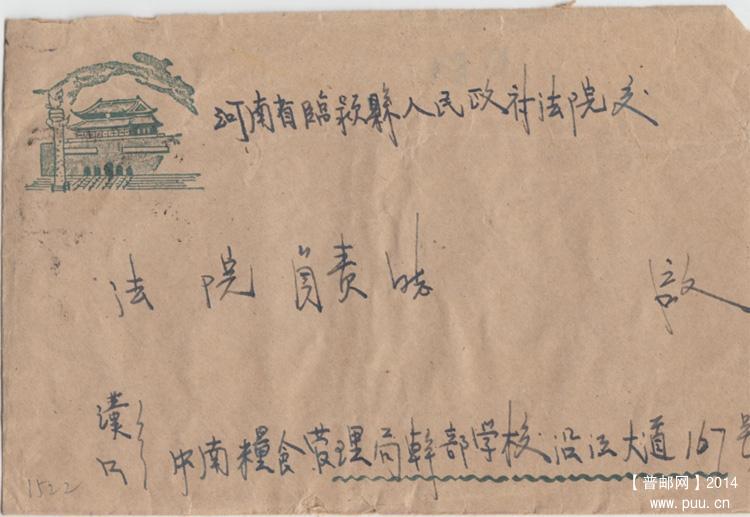 河南省臨潁縣人民政府法院交
法院負責 啟
漢口
中南糧食管理局幹部學校沿江大道167號
1522
【普邮网】2014
www.puu.cn